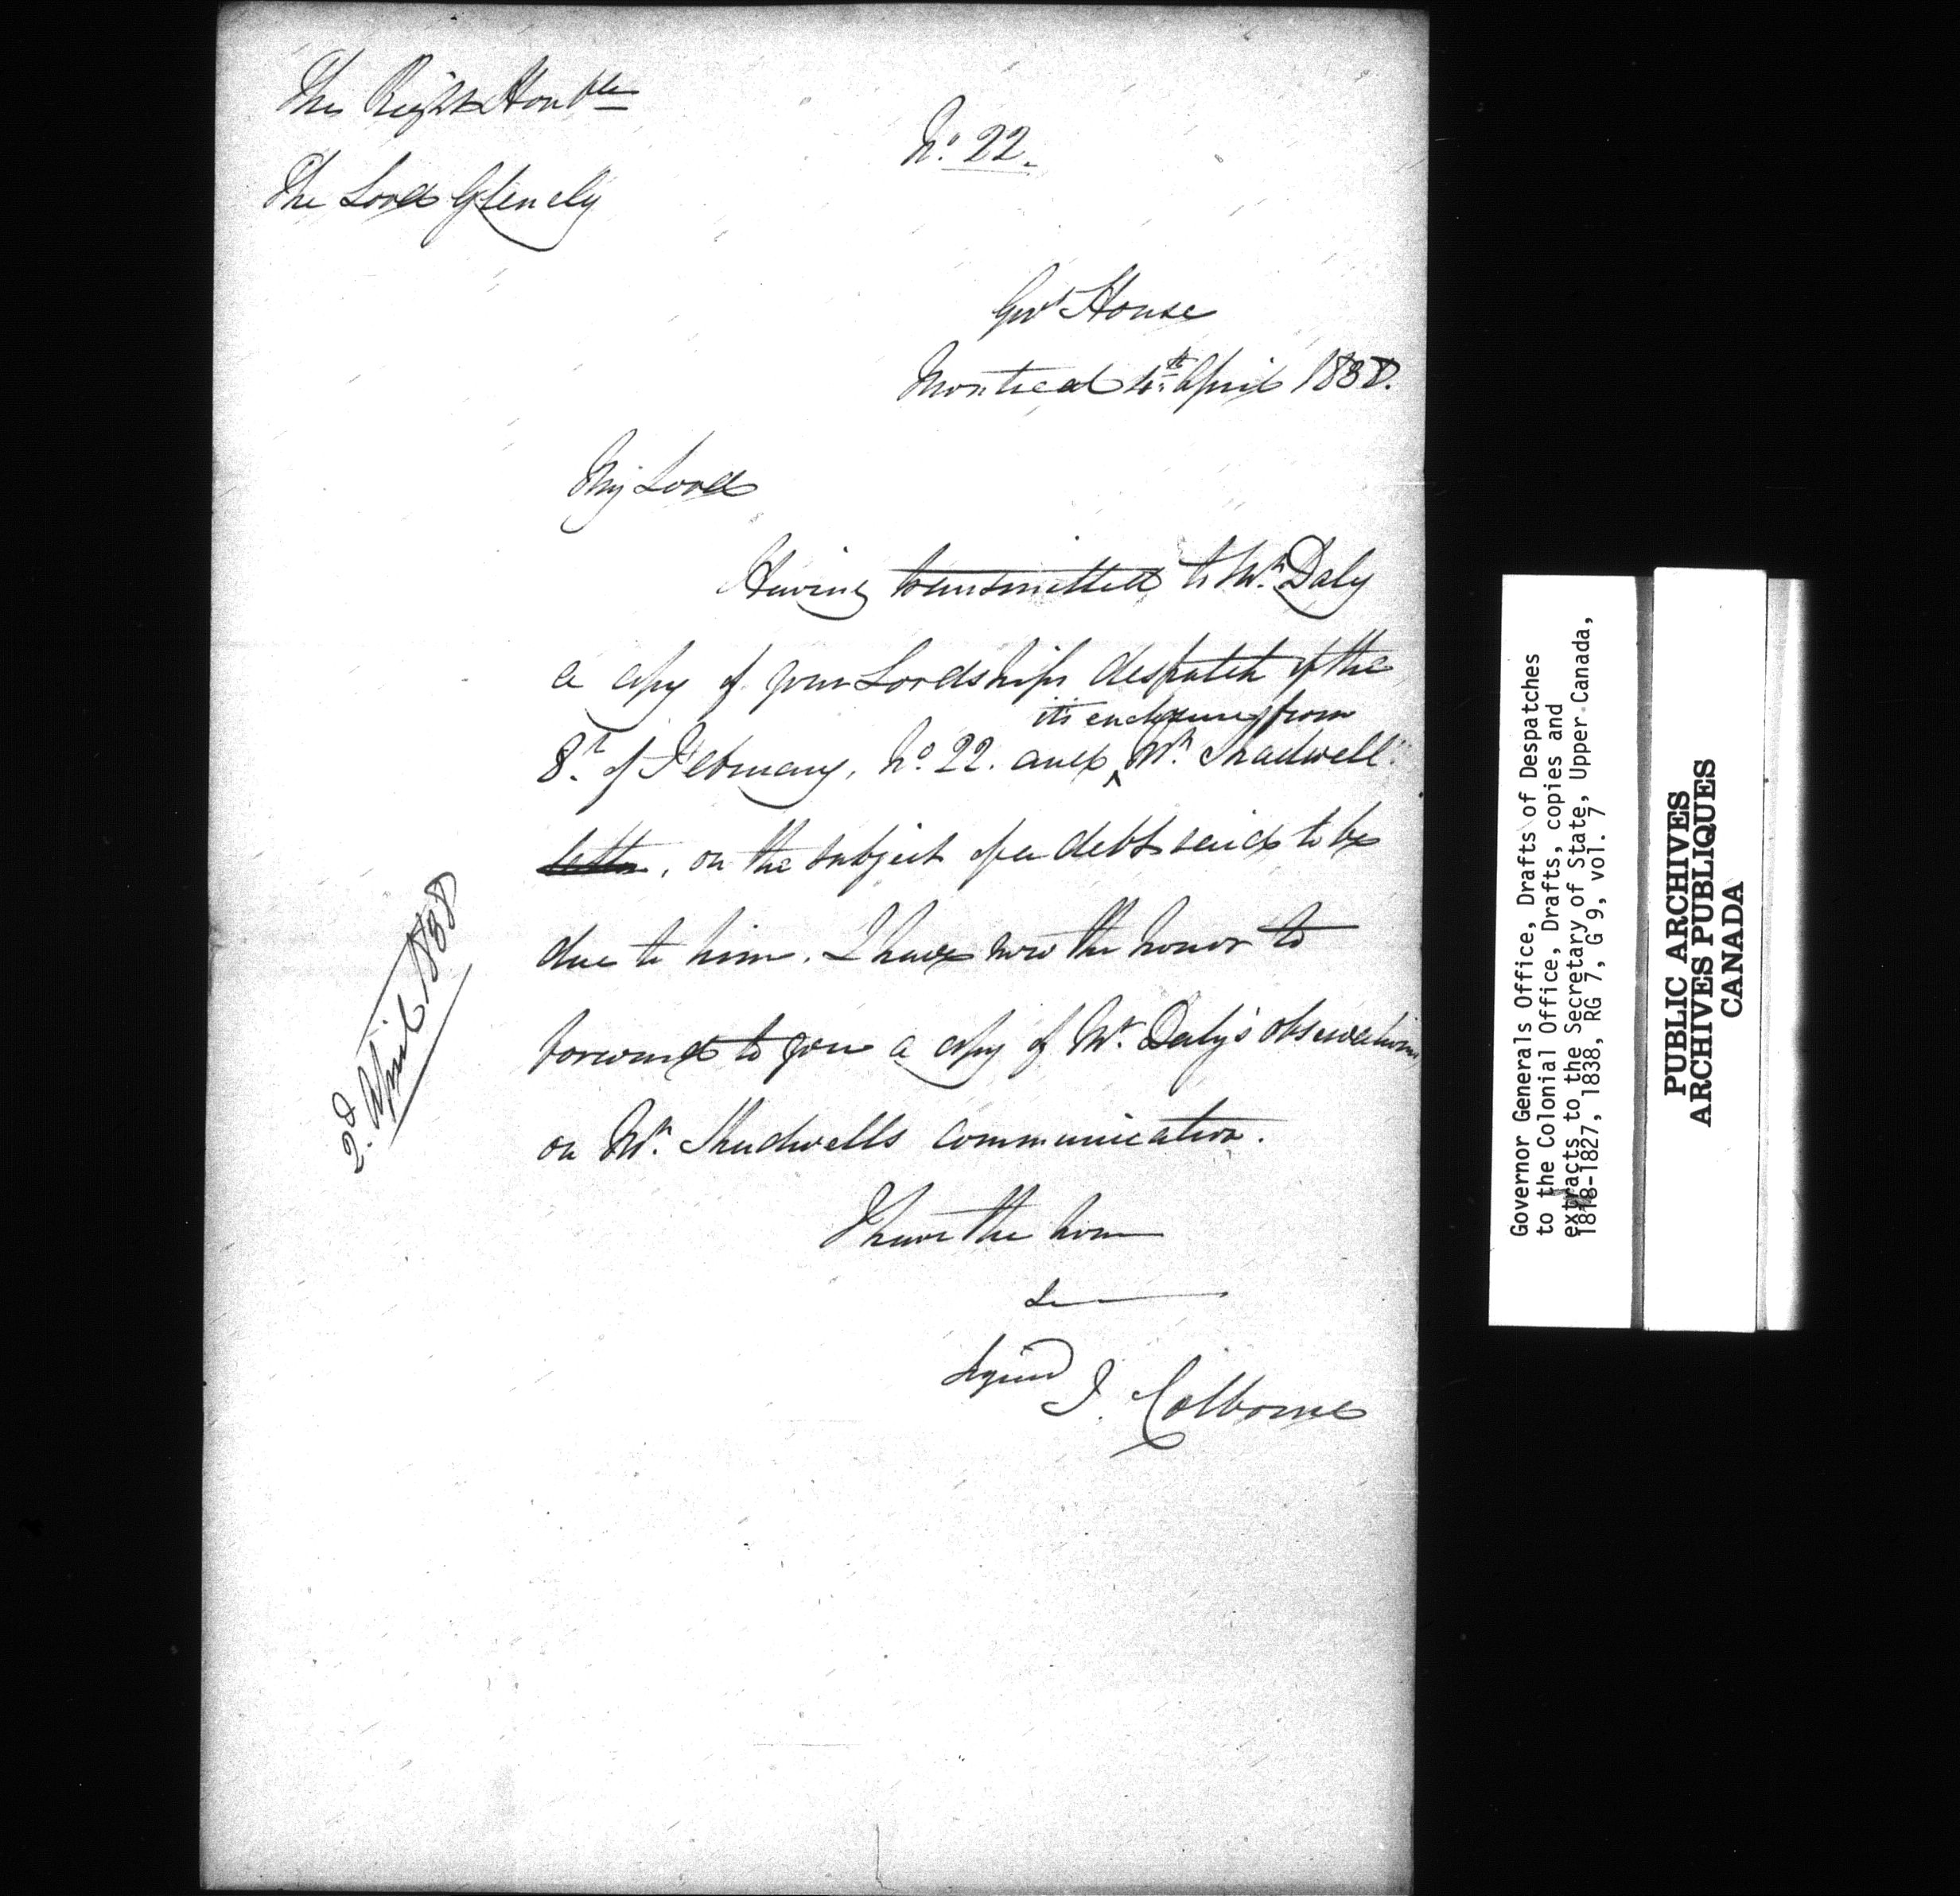 The Right Honble
The Lord Glenelg
No. 22.
Govt House
Montreal 4th April 1838.
My Lord
Having transmitted to Mr. Daly
a copy of your Lordships despatch of the
its enclosure from
8th of February, No. 22. and ^ Mr. Shadwell
letter, on the subject of a debt said to be
due to him. I have now the honor to
forward to you a copy of Mr. Daly's observations
on Mr. Shadwells communication.
I have the hon
&
signed J. Colborne
2d. April 1838
Governor Generals Office, Drafts of Despatches
to the Colonial Office, Drafts, copies and
extracts to the Secretary of State, Upper Canada,
1818-1827, 1838, RG 7, G 9, vol. 7
PUBLIC ARCHIVES
ARCHIVES PUBLIQUES
CANADA